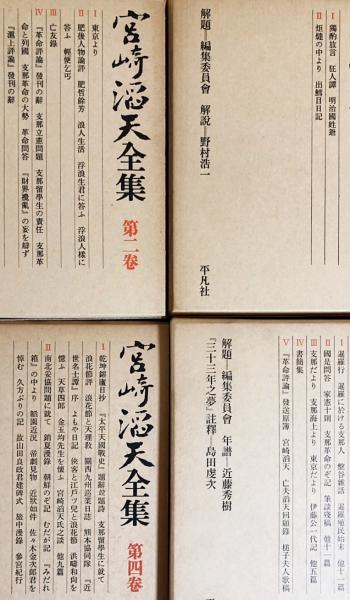 宮崎滔天全集
第二巻
I 東京より
II 肥後人物論評 肥哲餘芳 浪人生活 浮浪生君に答ふ 浮浪人様に
答ふ 輕便乞丐
III 亡友錄
IV 『革命評論』發刊の辭 支那立憲問題 支那留學生の責任 支那革
命と列國 支那革命の大勢 革命問答 『財界攪亂』の妄を辯ず
『滬上評論』發刊の辭
I 獨酌放言 狂人譚 明治國姓爺
II 炬燵の中より 出鱈目日記
解題＝編集委員會 解説＝野村浩一
平凡社
宮崎滔天全集
第四巻
I 乾坤鎔廬日抄 『太平天國戰史』題辭竝題詩 支那留學生に就て
浪花節評 浪花節と天理教 關西九州巡業日誌 熊本協同隊 『近
世名士譚』序 よもや日記 俠客と江戸ッ兒と浪花節 洪疇和尚を
憶ふ 天草四郎 金玉均先生を懷ふ 宮崎滔天氏之談 他九篇
II 南北妥協問題に就て 銷夏漫錄 朝鮮のぞ記 むだが記 『みだれ
箱』の中より 總選近況 帝劇見物 近狀如件 佐々木金次郎君を
悼む 久方ぶりの記 故山田良政君建碑式 旅中漫錄 參宮紀行
I 暹羅行 暹羅に於ける支那人 盤谷雜話 暹羅殖民始末 他十一篇
II 國是問答 家憲十則 支那革命のぞ記 筆談殘稿 他十一篇
III 支那だより 支那海上より 東京だより 伊藤公一代記 他五篇
IV 書簡集
V 『革命評論』發送原簿 宮崎滔天 亡夫滔天回顧錄 槌子夫人歌稿
解題＝編集委員會 年譜＝近藤秀樹
『三十三年之夢』註釋＝島田虔次